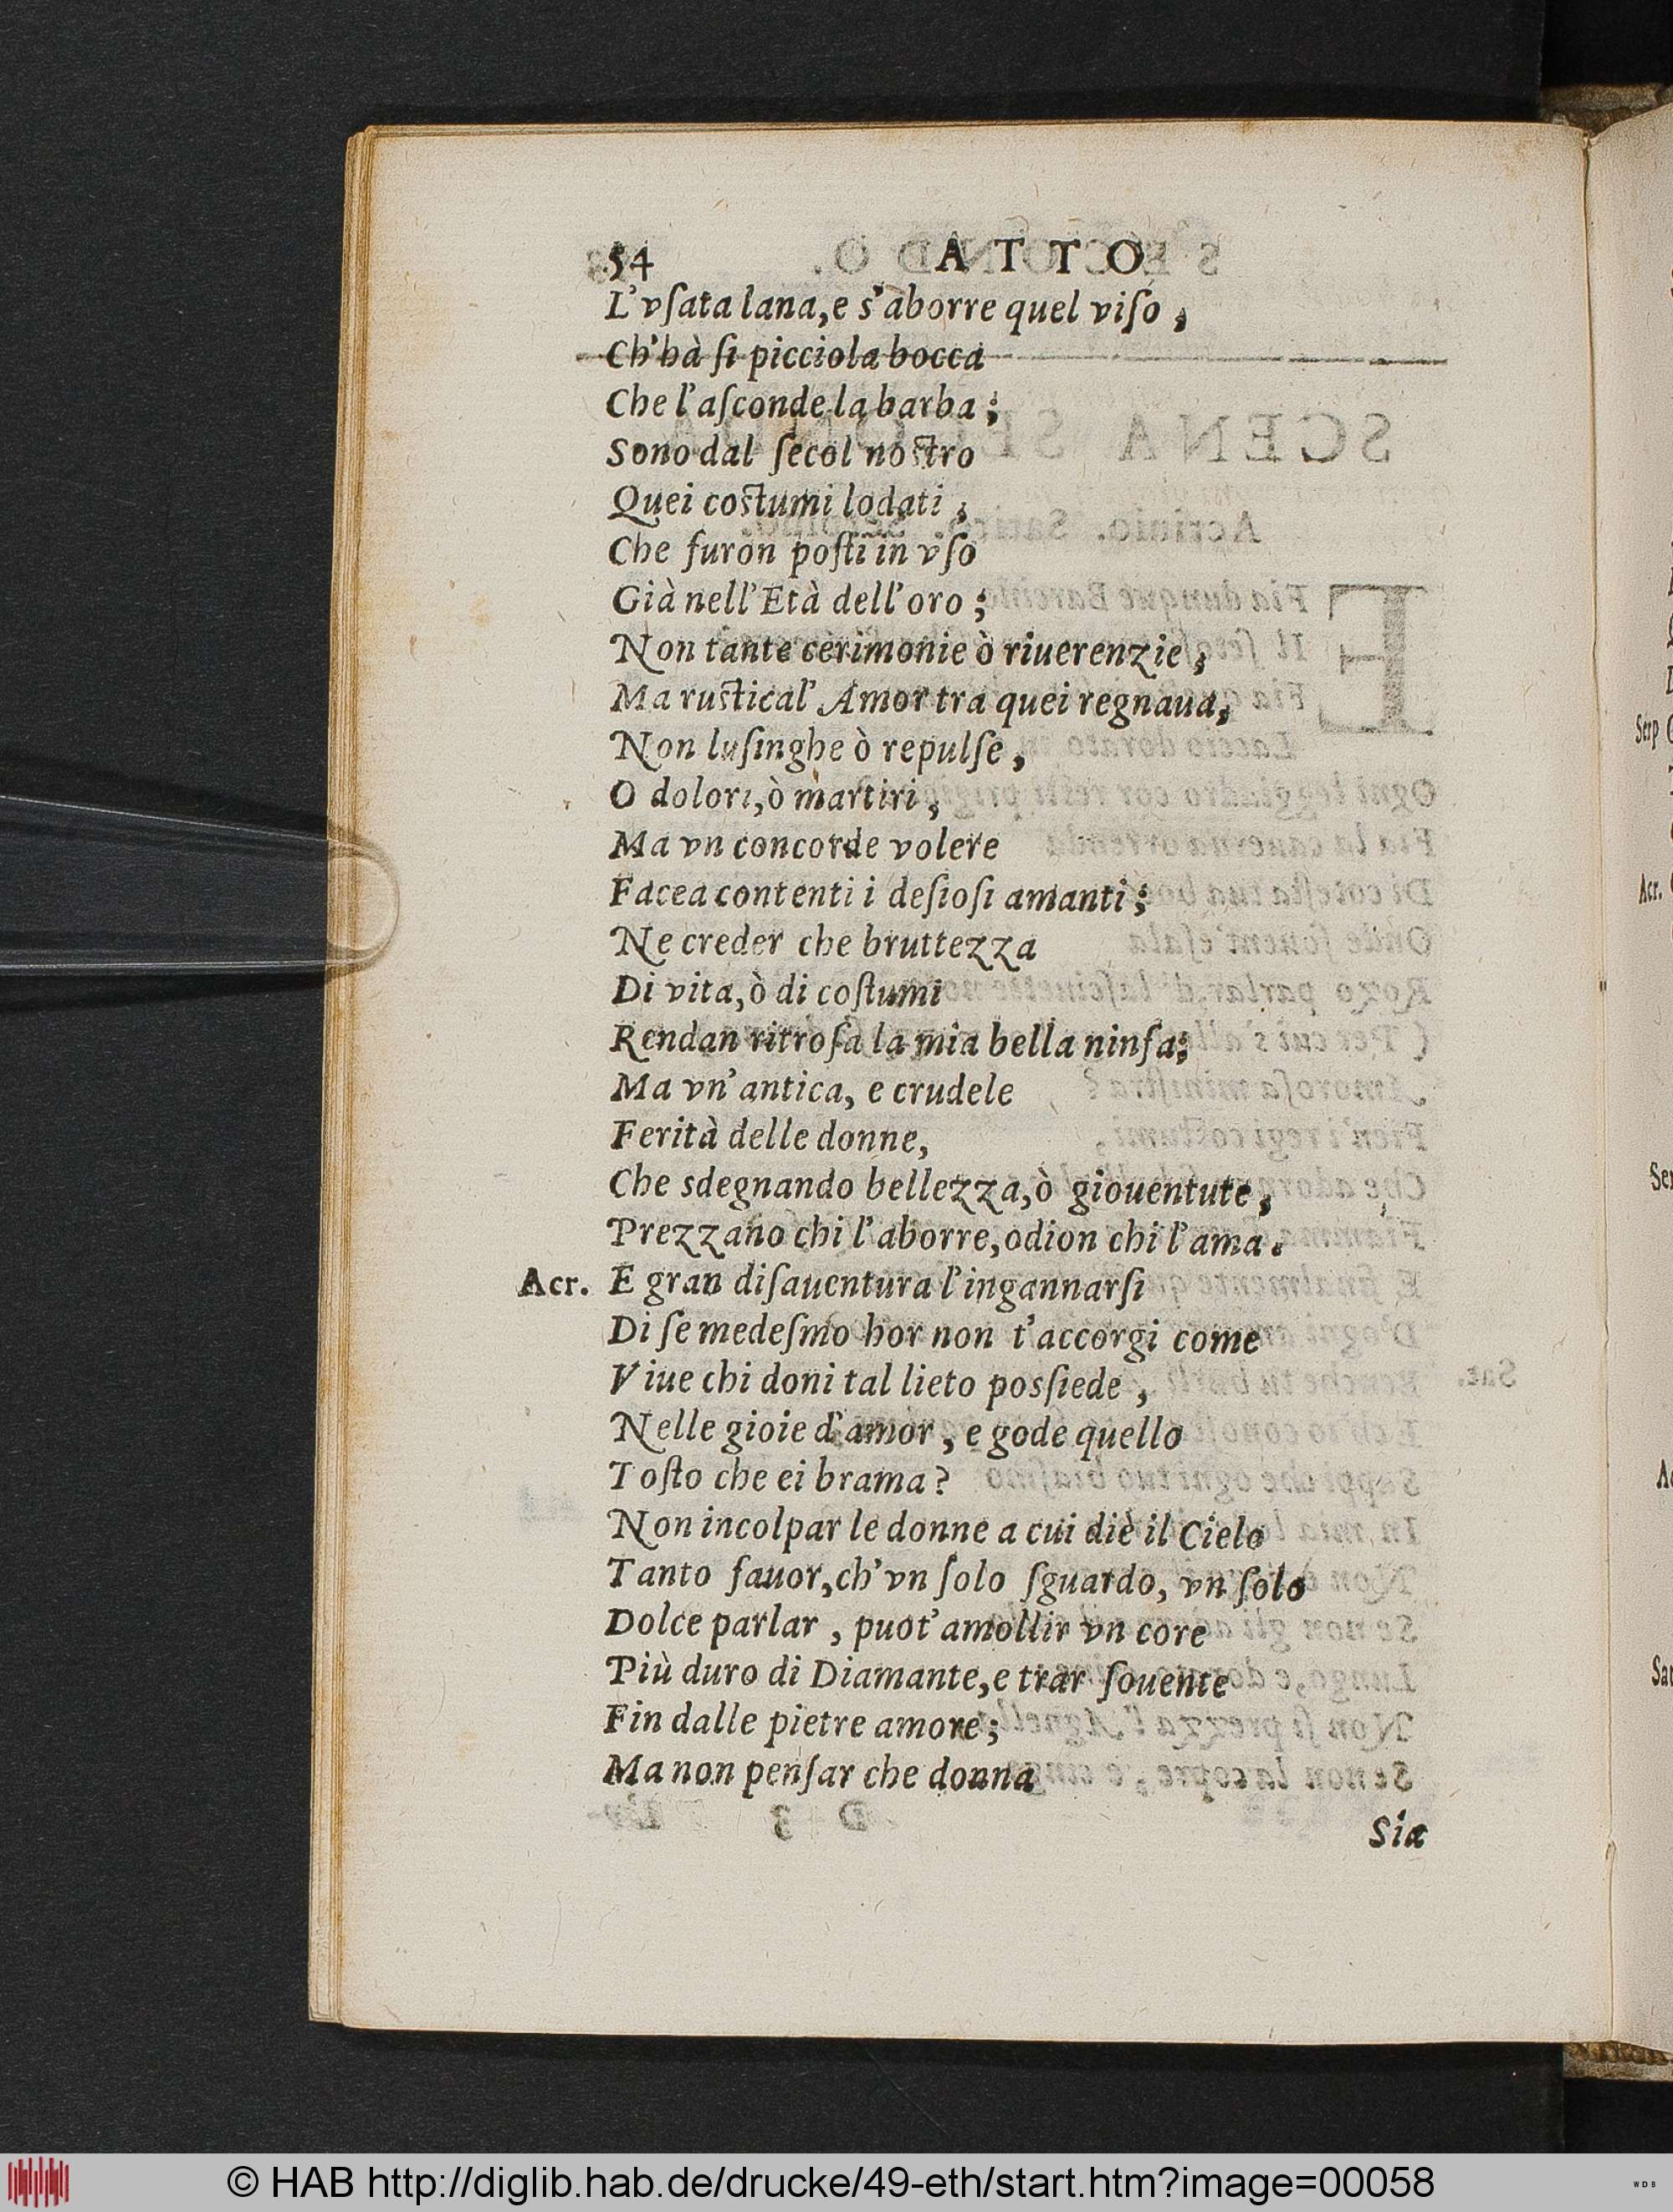 54 ATTO
L'vſata lana,e s'aborre quel viſo,
Ch'hà ſi picciola bocca
Che l'aſconde la barba;
Sono dal ſecol noſtro
Quei coſtumi lodati,
Che furon poſti in vſo
Già nell'Età dell'oro;
Non tante cerimonie ò riuerenzie,
Ma ruſtical' Amor tra quei regnaua,
Non luſinghe ò repulſe,
O dolori,ò martiri,
Ma vn concorde volere
Facea contenti i deſioſi amanti;
Ne creder che bruttezza
Di vita,ò di coſtumi
Rendan ritroſa la mia bella ninfa;
Ma vn'antica, e crudele
Ferità delle donne,
Che sdegnando bellezza,ò giouentute,
Prezzano chi l'aborre,odion chi l'ama.
Acr. E gran diſauentura l'ingannarſi
Di ſe medeſmo hor non t'accorgi come
Viue chi doni tal lieto posſiede,
Nelle gioie d'amor, e gode quello
Toſto che ei brama?
Non incolpar le donne a cui diè il Cielo
Tanto fauor,ch'vn ſolo ſguardo, vn ſolo
Dolce parlar, puot'amollir vn core
Più duro di Diamante,e trar ſouente
Fin dalle pietre amore;
Ma non penſar che donna
Sia
© HAB http://diglib.hab.de/drucke/49-eth/start.htm?image=00058
WDB